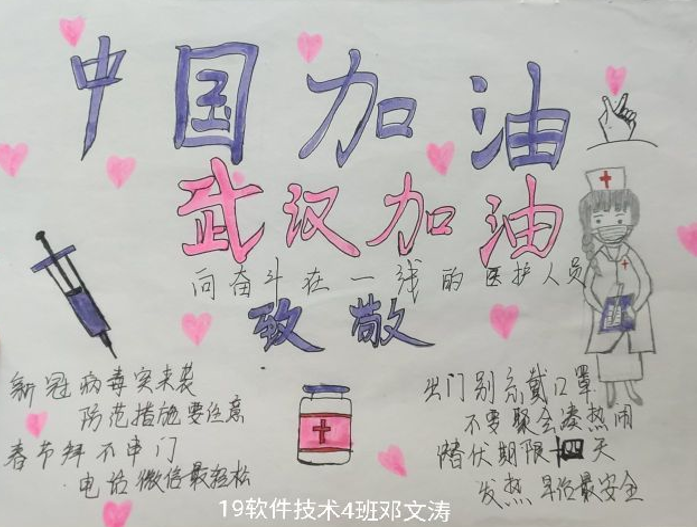 中国加油
武汉加油
向奋斗在一线的医护人员
致敬
新冠病毒突来袭
防范措施要注意
春节拜不串门
电话微信最轻松
出门别忘戴口罩
不要聚会凑热闹
潜伏期限十四天
发热早治最安全
19软件技术4班邓文涛